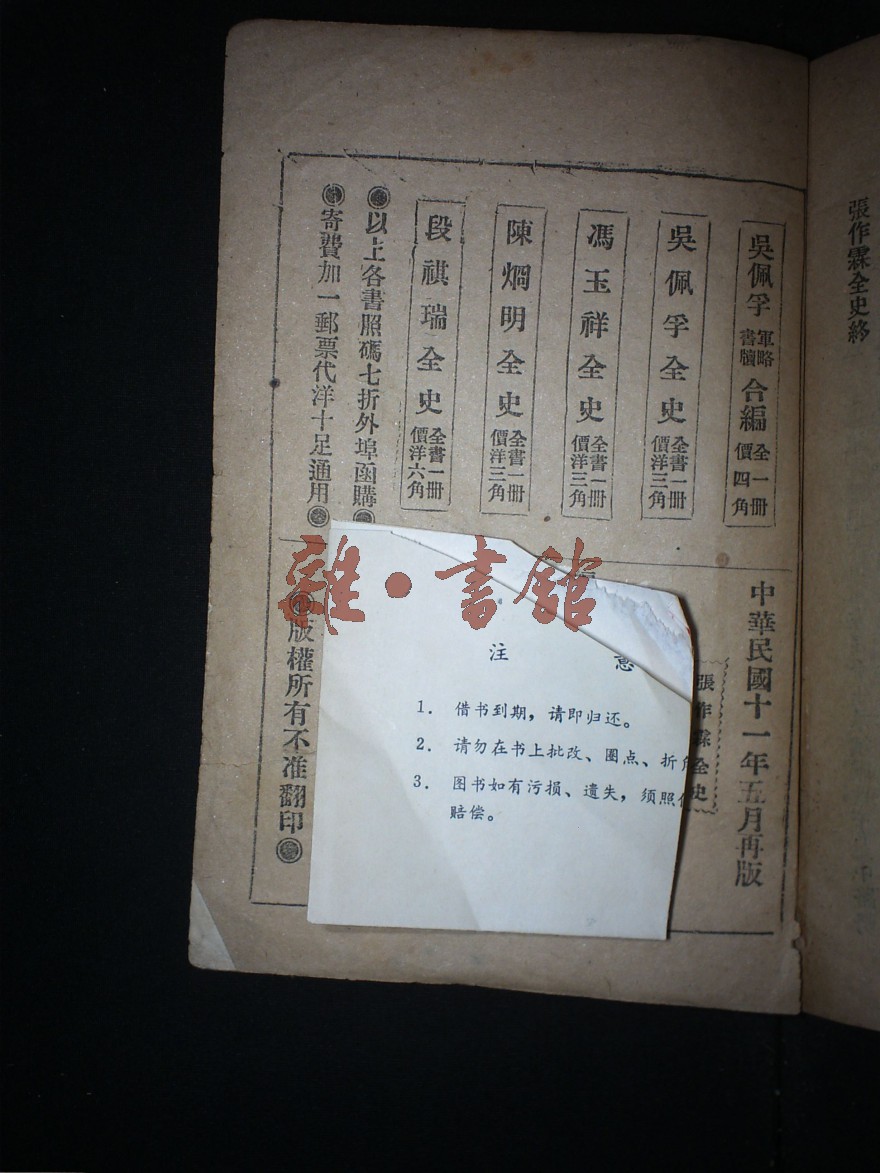 張作霖全史終
吳佩孚軍略書牘合編 全一冊 價四角
吳佩孚全史 全書一冊 價洋三角
馮玉祥全史 全書一冊 價洋三角
陳烱明全史 全書一冊 價洋三角
段祺瑞全史 全書一冊 價洋六角
●以上各書照碼七折外埠函購●
●寄費加一郵票代洋十足通用●
中華民國十一年五月再版
張作霖全史
版權所有不准翻印
雜·書館
注 意
1. 借书到期，请即归还。
2. 请勿在书上批改、圈点、折
3. 图书如有污损、遗失，须照
赔偿。